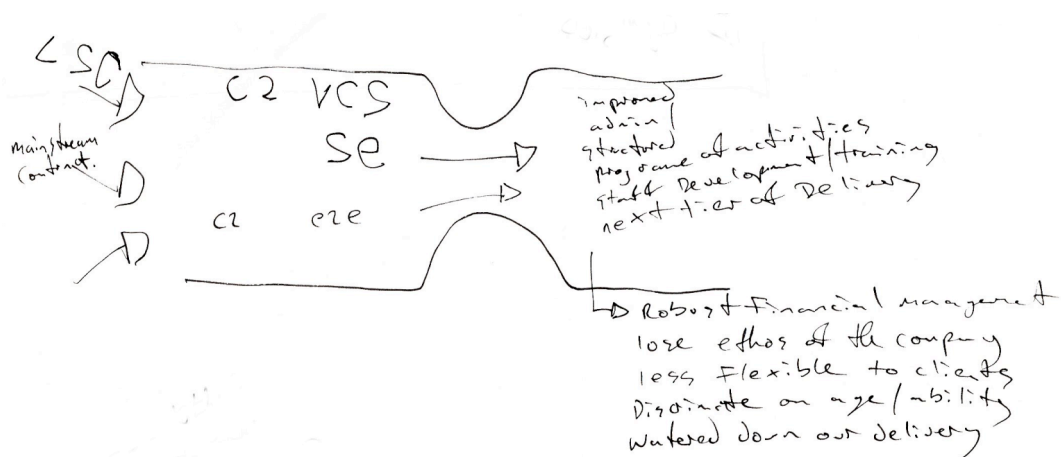 LSC
C2 VCS
SE
mainstream
contract.
C2 e2e
improved
admin
structured
programe of activities
staff Development/training
next tier of Delivery
Robust Financial management
lose ethos of the company
less Flexible to clients
on age/ability
watered down our delivery